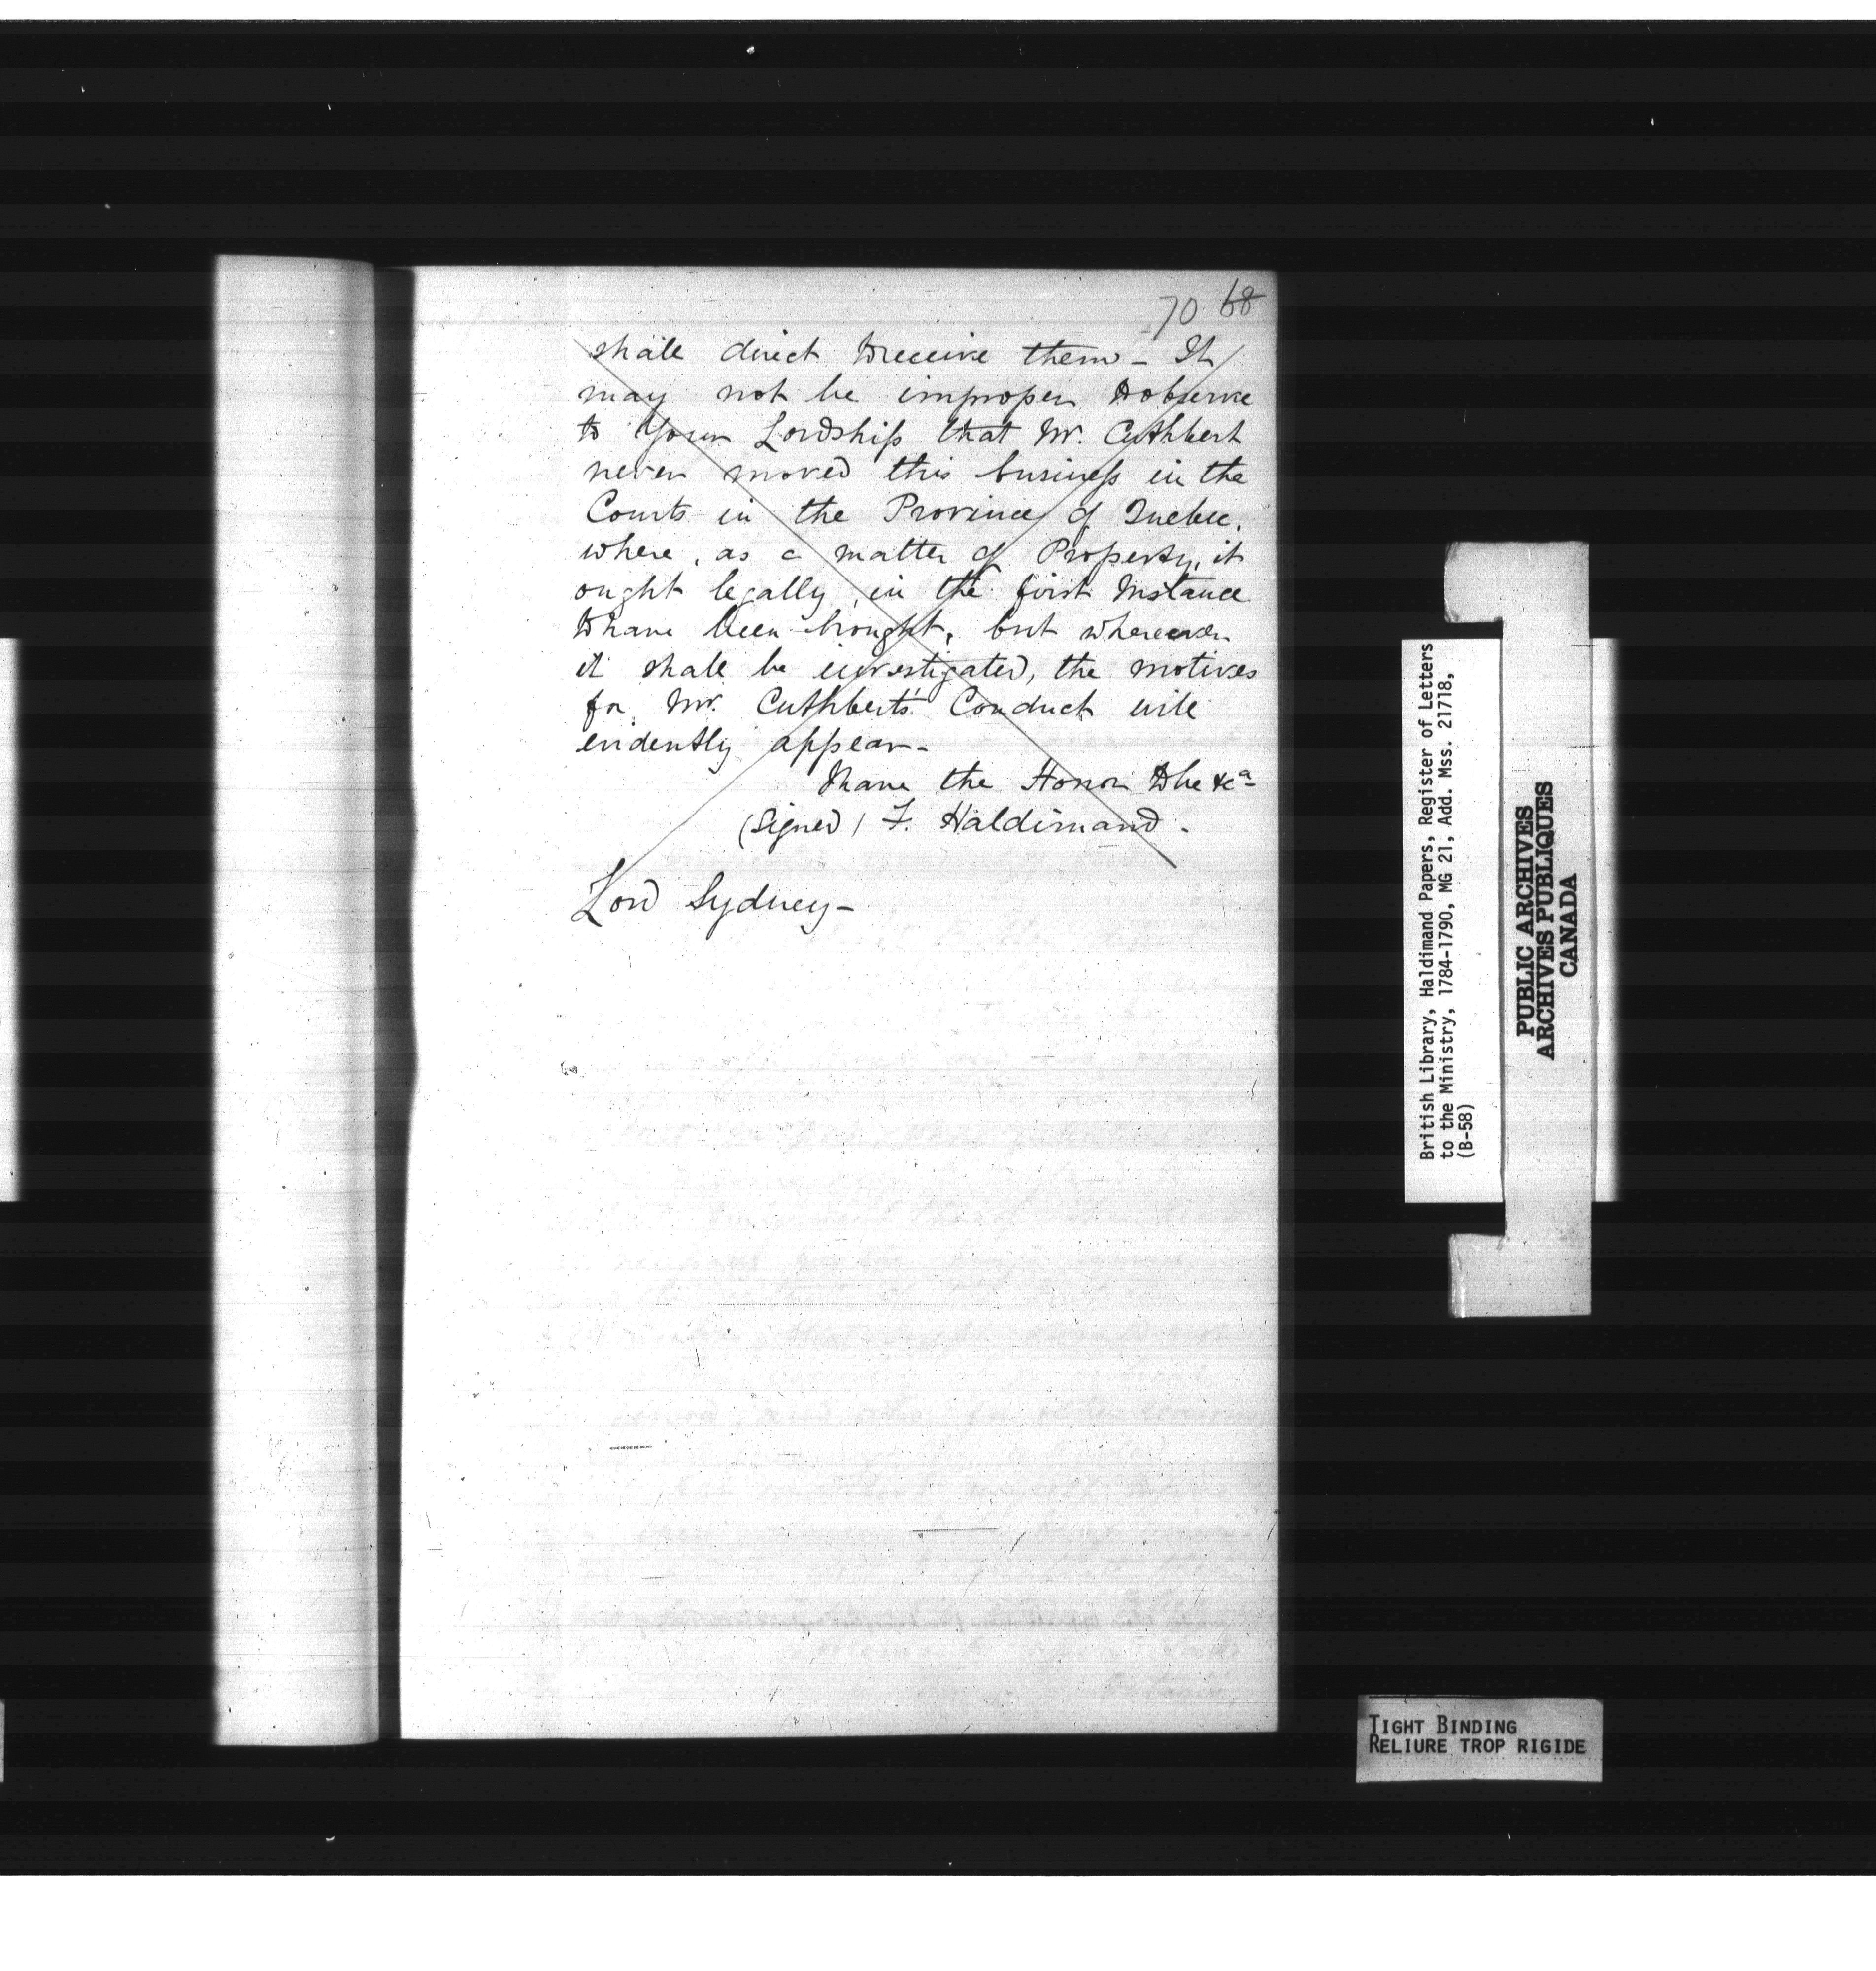 70 68
shall direct to receive them - It
may not be improper to observe
to Your Lordship that Mr. Cuthbert
never moved this business in the
Courts in the Province of Quebec.
where, as a matter of Property, it
ought legally, in the first Instance
to have been brought, but wherever
it shall be investigated, the motives
for Mr. Cuthbert's Conduct will
evidently appear -
I have the Honor to be &ca
(Signed) F. Haldimand -
Lord Sydney -
British Library, Haldimand Papers, Register of Letters
to the Ministry, 1784-1790, MG 21, Add. Mss. 21718,
(B-58)
PUBLIC ARCHIVES
ARCHIVES PUBLIQUES
CANADA
TIGHT BINDING
RELIURE TROP RIGIDE